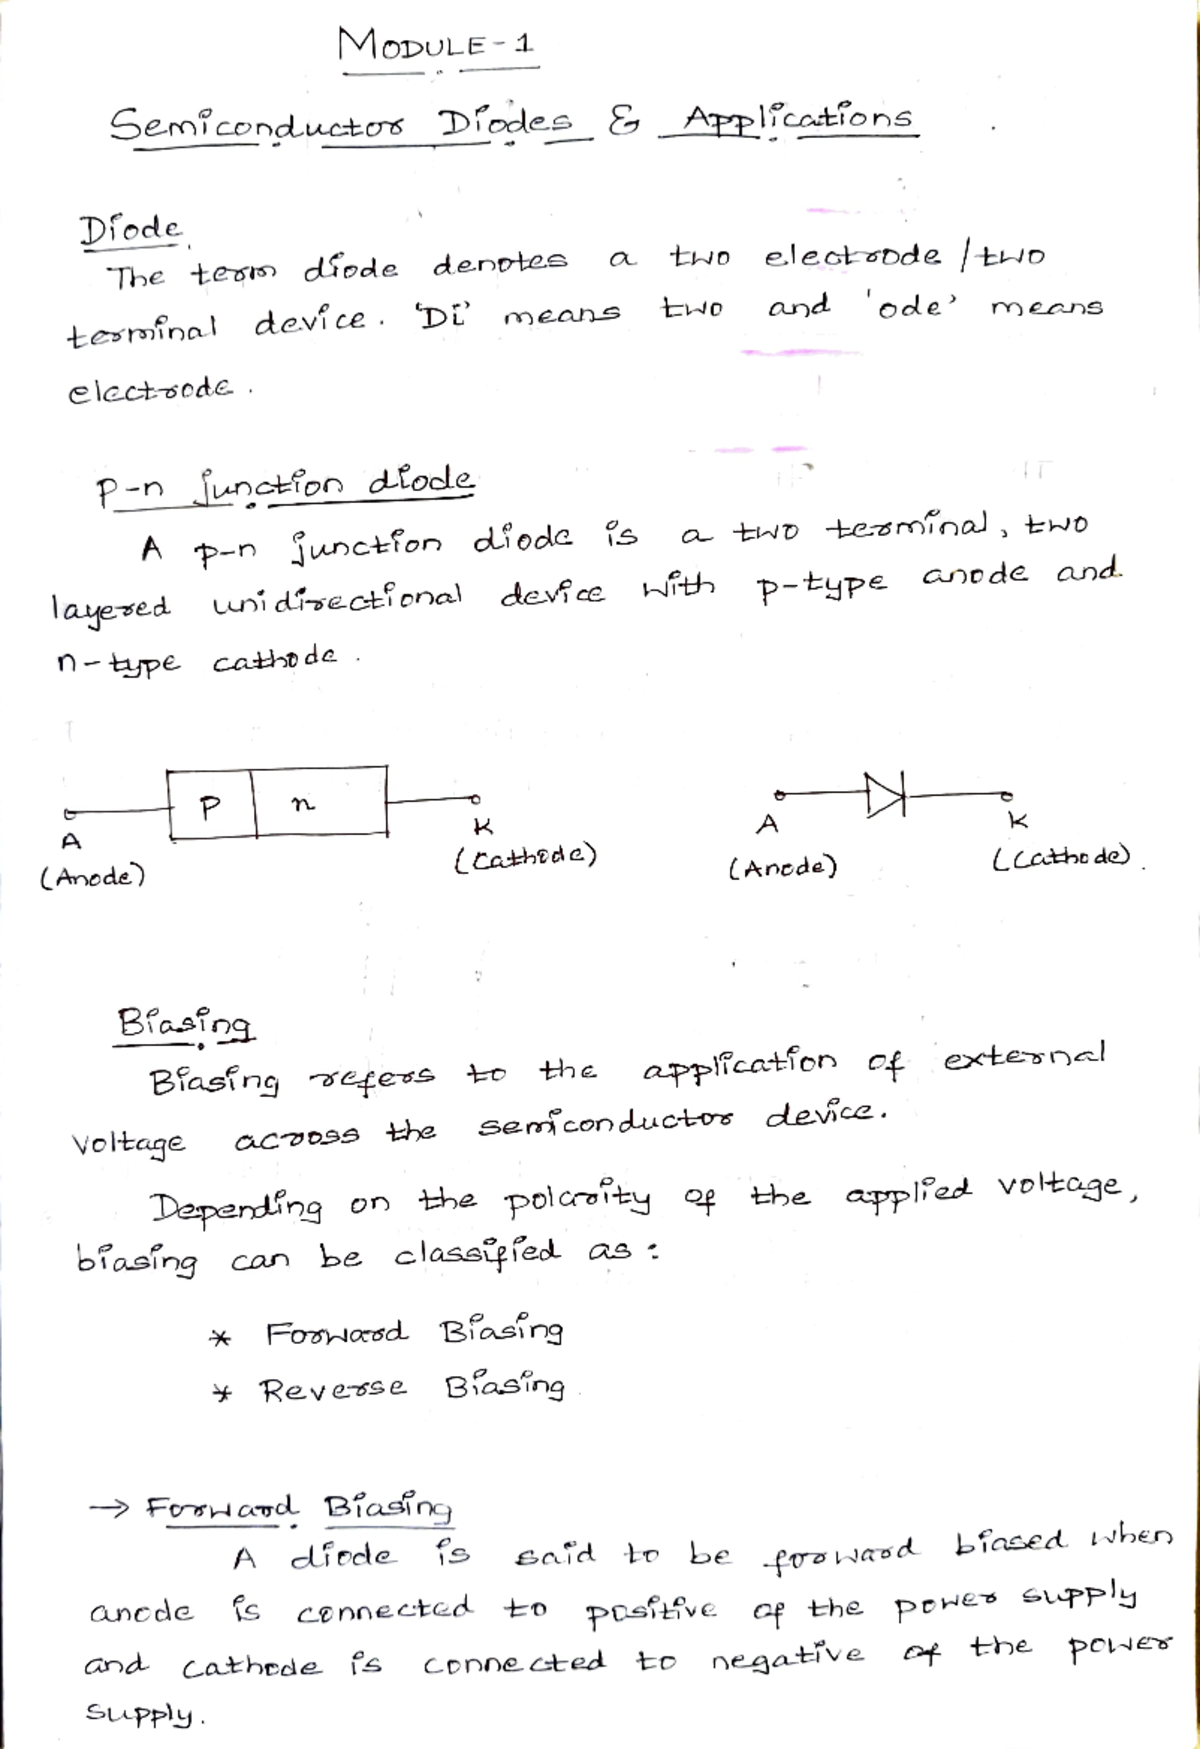 MODULE-1
Semiconductor Diodes & Applications
Diode
The term diode denotes a two electrode/two
terminal device. 'Di' means two and 'ode' means
electrode.
P-n junction diode
A p-n junction diode is a two terminal, two
layered unidirectional device with p-type anode and
n-type cathode.
P n
A K A K
(Anode) (Cathode) (Anode) (Cathode).
Biasing
Biasing refers to the application of external
voltage across the semiconductor device.
Depending on the polarity of the applied voltage,
biasing can be classified as:
* Forward Biasing
* Reverse Biasing
→ Forward Biasing
A diode is said to be forward biased when
anode is connected to positive of the power supply
and cathode is connected to negative of the power
supply.